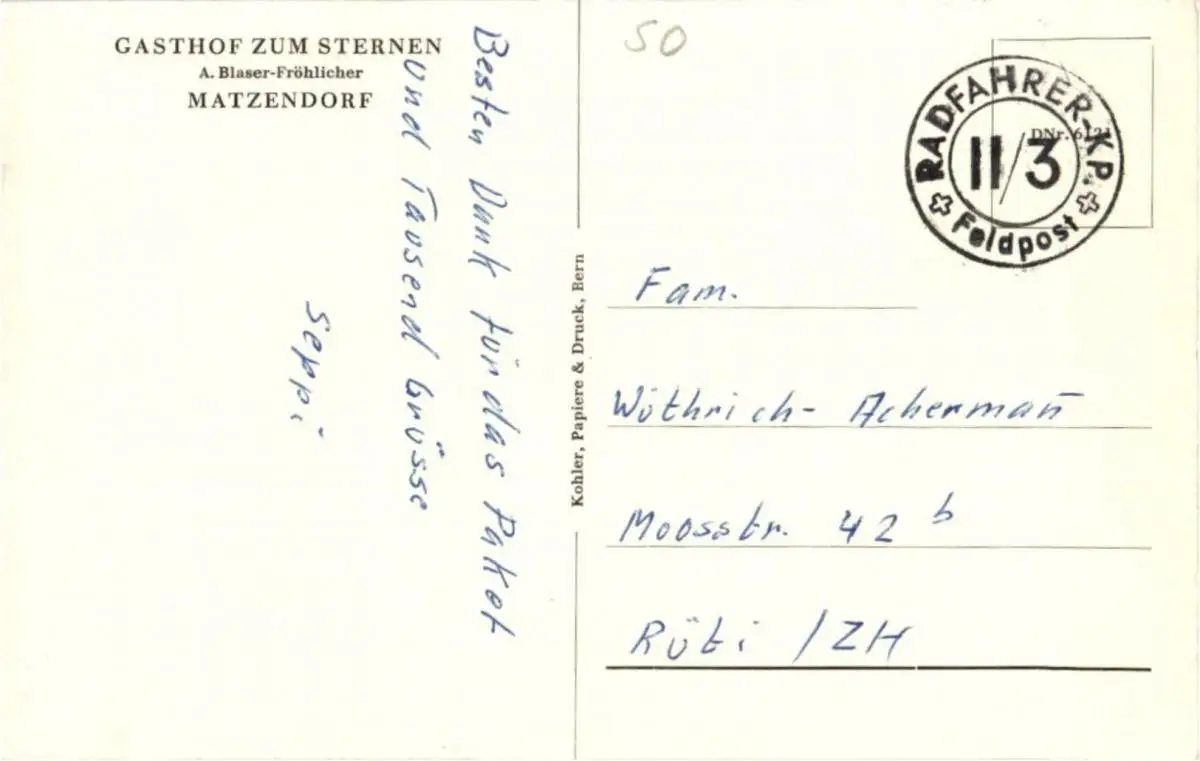 GASTHOF ZUM STERNEN
A. Blaser-Fröhlicher
MATZENDORF
Besten Dank für das Paket
und Tausend Grüsse
Seppi
Kohler, Papiere & Druck, Bern
50
RADFAHRER-KP.
II/3
Feldpost
DNr. 6121
Fam.
Wüthrich-Ackermañ
Moosstr. 42 b
Rüti /ZH